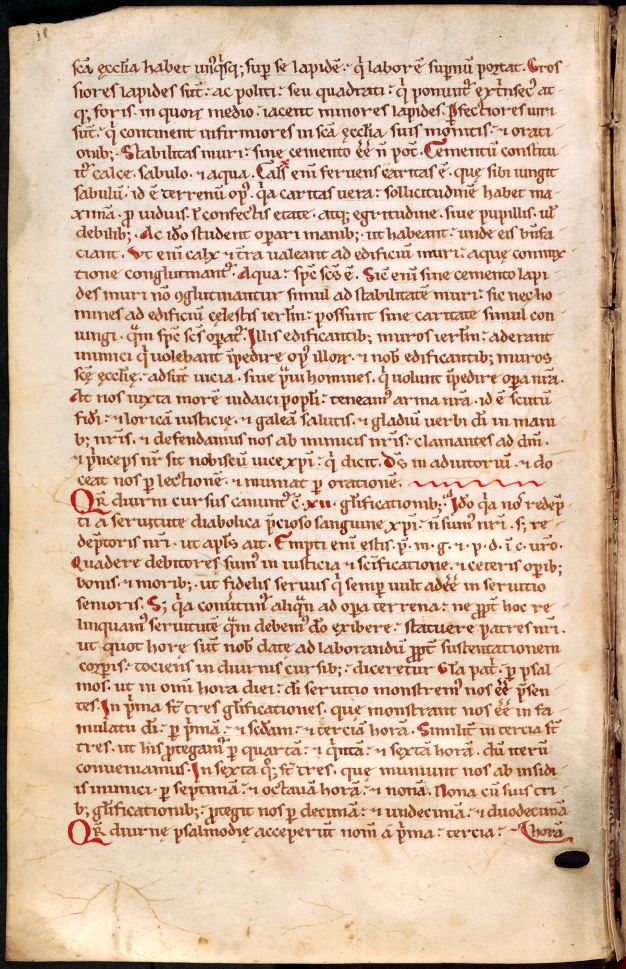 scā ęcclia habet unꝰqͥsq; suꝑ se lapidē. qͥ laborē suꝑnū portat. Gros
siores lapides sūt. ac politi. seu quadrati. qͥ ponunt᷑ ext̾nsecꝰ at
q; foris. in quorꝝ medio iacent minores lapides. ꝑfectiores uiri
sūt. qͥ continent infirmiores in scā ęcclia suis monitis. ⁊ orati
onib;. Stabilitas muri. sine cemento ēē n̄ pōt. Cementū constitu
it᷑ calce. sabulo. ⁊ aqua. Calx eni feruens caritas ē. quę sibi iungit
sabulū. id ē terrenū opꝰ. qͥa caritas uera. sollicitudinē habet ma
ximā. ꝓ uiduis. ł confectis etate. atq; egritudine. siue pupillis. uł
debilib;. Ac ido student operari manib;. ut habeant unde eis bn̄fa
ciant. Ut eni calx ⁊ t̾ra ualeant ad edificiū muri. aquę commix
tione conglutinant᷑. Aqua. spc scs ē. Sic eni sine cemento lapi
des muri nō ꝯglutinantur simul ad stabilitatē muri. sic nec ho
mines ad edificiū cęlestis ierlm. possunt sine caritate simul con
iungi. qͣm spc scs operat᷑. Illis edificantib; muros ierlm. aderant
inimici qͥ uolebant īpedire opꝰ illorꝝ. ⁊ nob edificantib; muros
scę ęcclię. adsūt uicia. siue praui homines. qͥ uolunt īpedire oꝑa nr̄a.
At nos iuxta morē iudaici popli. teneamꝰ arma nr̄a. id ē scutū
fidei. ⁊ loricā iusticię. ⁊ galeā salutis. ⁊ gladiū uerbi di in mani
b; nr̄is. ⁊ defendamus nos ab inimicis nr̄is. clamantes ad dm̄.
⁊ princeps nr̄ sit nobiscū uice xpi. qͥ dicit. Ds in adiutoriū. ⁊ do
ceat nos ꝑ lectionē. ⁊ muniat ꝑ orationē.
QR diurni cursus canunt᷑ c̄ .xii. glificationib;. Ido qͥa nos redēp
ti a seruitute diabolica p̄cioso sanguine xpi. n̄ sumꝰ nri. s; re
dēptoris nri. ut apls ait. Empti eni estis. p̄. m. g. ⁊. p. d. ī c. uro.
Quadere debitores sumꝰ in iusticia ⁊ scificatione. ⁊ ceteris oꝑib;
bonis. ⁊ morib;. ut fidelis seruus qͥ semꝑ uult adēē in seruitio
senioris. S; qͥa comittimꝰ aliqͣn ad oꝑa terrena. ne ꝓpt̾ hoc re
linquamꝰ seruitutē qͣm debemꝰ do exibere. statuere patres nri.
ut quot horę sūt nob datę ad laborandū ꝓpt̾ sustentationem
corꝑis. tociens in diurnis cursib;. diceretur Gla pat̾. ꝑ psal
mos. ut in omi hora diei. di seruitio monstremꝰ nos ēē p̄sen
tes. In p̄ma st̄ tres glificationes. que monstrant nos ēē in fa
mulatu di. ꝑ p̄mā. ⁊ scdam. ⁊ terciā horā. Similit̾ in tercia st̄
tres. ut his ꝓtegamꝰ ꝑ quartā. ⁊ qͥntā. ⁊ sextā horā. dū iterū
conueniamus. In sexta qͦ;. st̄ tres. quę muniunt nos ab insidi
is inimici. ꝑ septimā. ⁊ octauā horā. ⁊ nonā. Nona cū suis tri
b; glificationib;. ꝓtegit nos ꝑ decimā. ⁊ undecimā. ⁊ duodecimā
QR diurnę psalmodię acceperunt nom̄ a p̄ma. tercia. horā